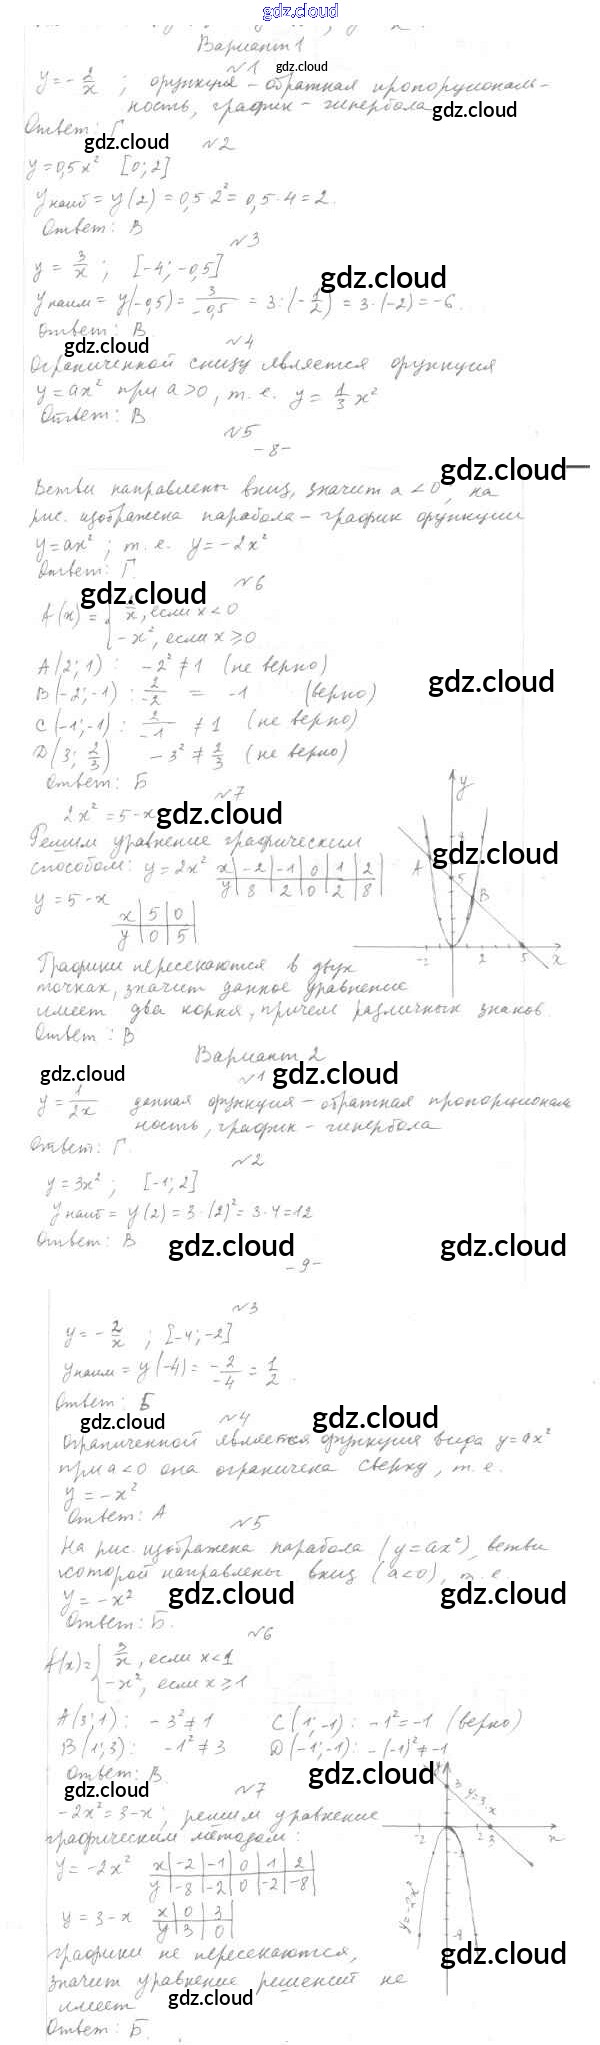 gdz.cloud
Вариант 1
№1 gdz.cloud
y = - 2/x ; функция - обратная пропорциональ-
ность, график - гипербола gdz.cloud
Ответ: Г
gdz.cloud №2
y = 0,5x² [0; 2]
yнаиб = y(2) = 0,5·2² = 0,5·4 = 2.
Ответ: В
№3
y = 3/x ; [-4; -0,5] gdz.cloud
yнаим = y(-0,5) = 3/-0,5 = 3:(-1/2) = 3·(-2) = -6.
Ответ: В
gdz.cloud №4
Ограниченной снизу является функция
y = ax² при a > 0, т.е. y = 1/3 x²
Ответ: В
№5
-8-
gdz.cloud
Ветви направлены вниз, значит a < 0, на
рис. изображена парабола - график функции
y = ax² ; т.е. y = -2x²
Ответ: Г.
gdz.cloud №6
A(x) = x, если x < 0
-x², если x ⩾ 0
A(2; 1): -2² ≠ 1 (не верно)
B(-2; -1): 2/-2 = -1 (верно) gdz.cloud
C(-1; -1): 2/-1 ≠ 1 (не верно)
D(3; 2/3) -3² ≠ 2/3 (не верно)
Ответ: Б
№7
2x² = 5 - x gdz.cloud
Решим уравнение графическим
способом: y = 2x² x | -2 | -1 | 0 | 1 | 2 gdz.cloud
y | 8 | 2 | 0 | 2 | 8
y = 5 - x
x | 5 | 0
y | 0 | 5
y
A 5 B
-2 2 5 x
Графики пересекаются в двух
точках, значит данное уравнение
имеет два корня, причем различных знаков.
Ответ: В
Вариант 2
gdz.cloud №1 gdz.cloud
y = 1/2x данная функция - обратная пропорциональ
ность, график - гипербола
Ответ: Г.
№2
y = 3x² ; [-1; 2]
yнаиб = y(2) = 3·(2)² = 3·4 = 12
Ответ: В gdz.cloud gdz.cloud
-9-
№3
y = - 2/x ; [-4; -2]
yнаим = y(-4) = - 2/-4 = 1/2 .
Ответ: Б
gdz.cloud №4 gdz.cloud
Ограниченной является функция вида y = ax²
при a < 0 она ограничена сверху, т.е.
y = -x²
Ответ: А
№5
На рис. изображена парабола (y = ax²), ветви
которой направлены вниз (a < 0), т.е.
y = -x² gdz.cloud gdz.cloud
Ответ: Б.
№6
A(x) = 3/x, если x < 1
-x², если x ⩾ 1
A(3; 1): -3² ≠ 1 C(1; -1): -1² = -1 (верно)
B(1; 3): -1² ≠ 3 D(-1; -1): -(-1)² ≠ -1
Ответ: В. gdz.cloud
gdz.cloud №7
-2x² = 3 - x ; решим уравнение
графическим методом:
y = -2x² x | -2 | -1 | 0 | 1 | 2
y | -8 | -2 | 0 | -2 | -8
y = 3 - x x | 0 | 3
y | 3 | 0
3 y = 3 - x
-2 2 3 x
y = -2x²
-8
графики не пересекаются, gdz.cloud
значит уравнение решений не
имеет gdz.cloud
Ответ: Б.